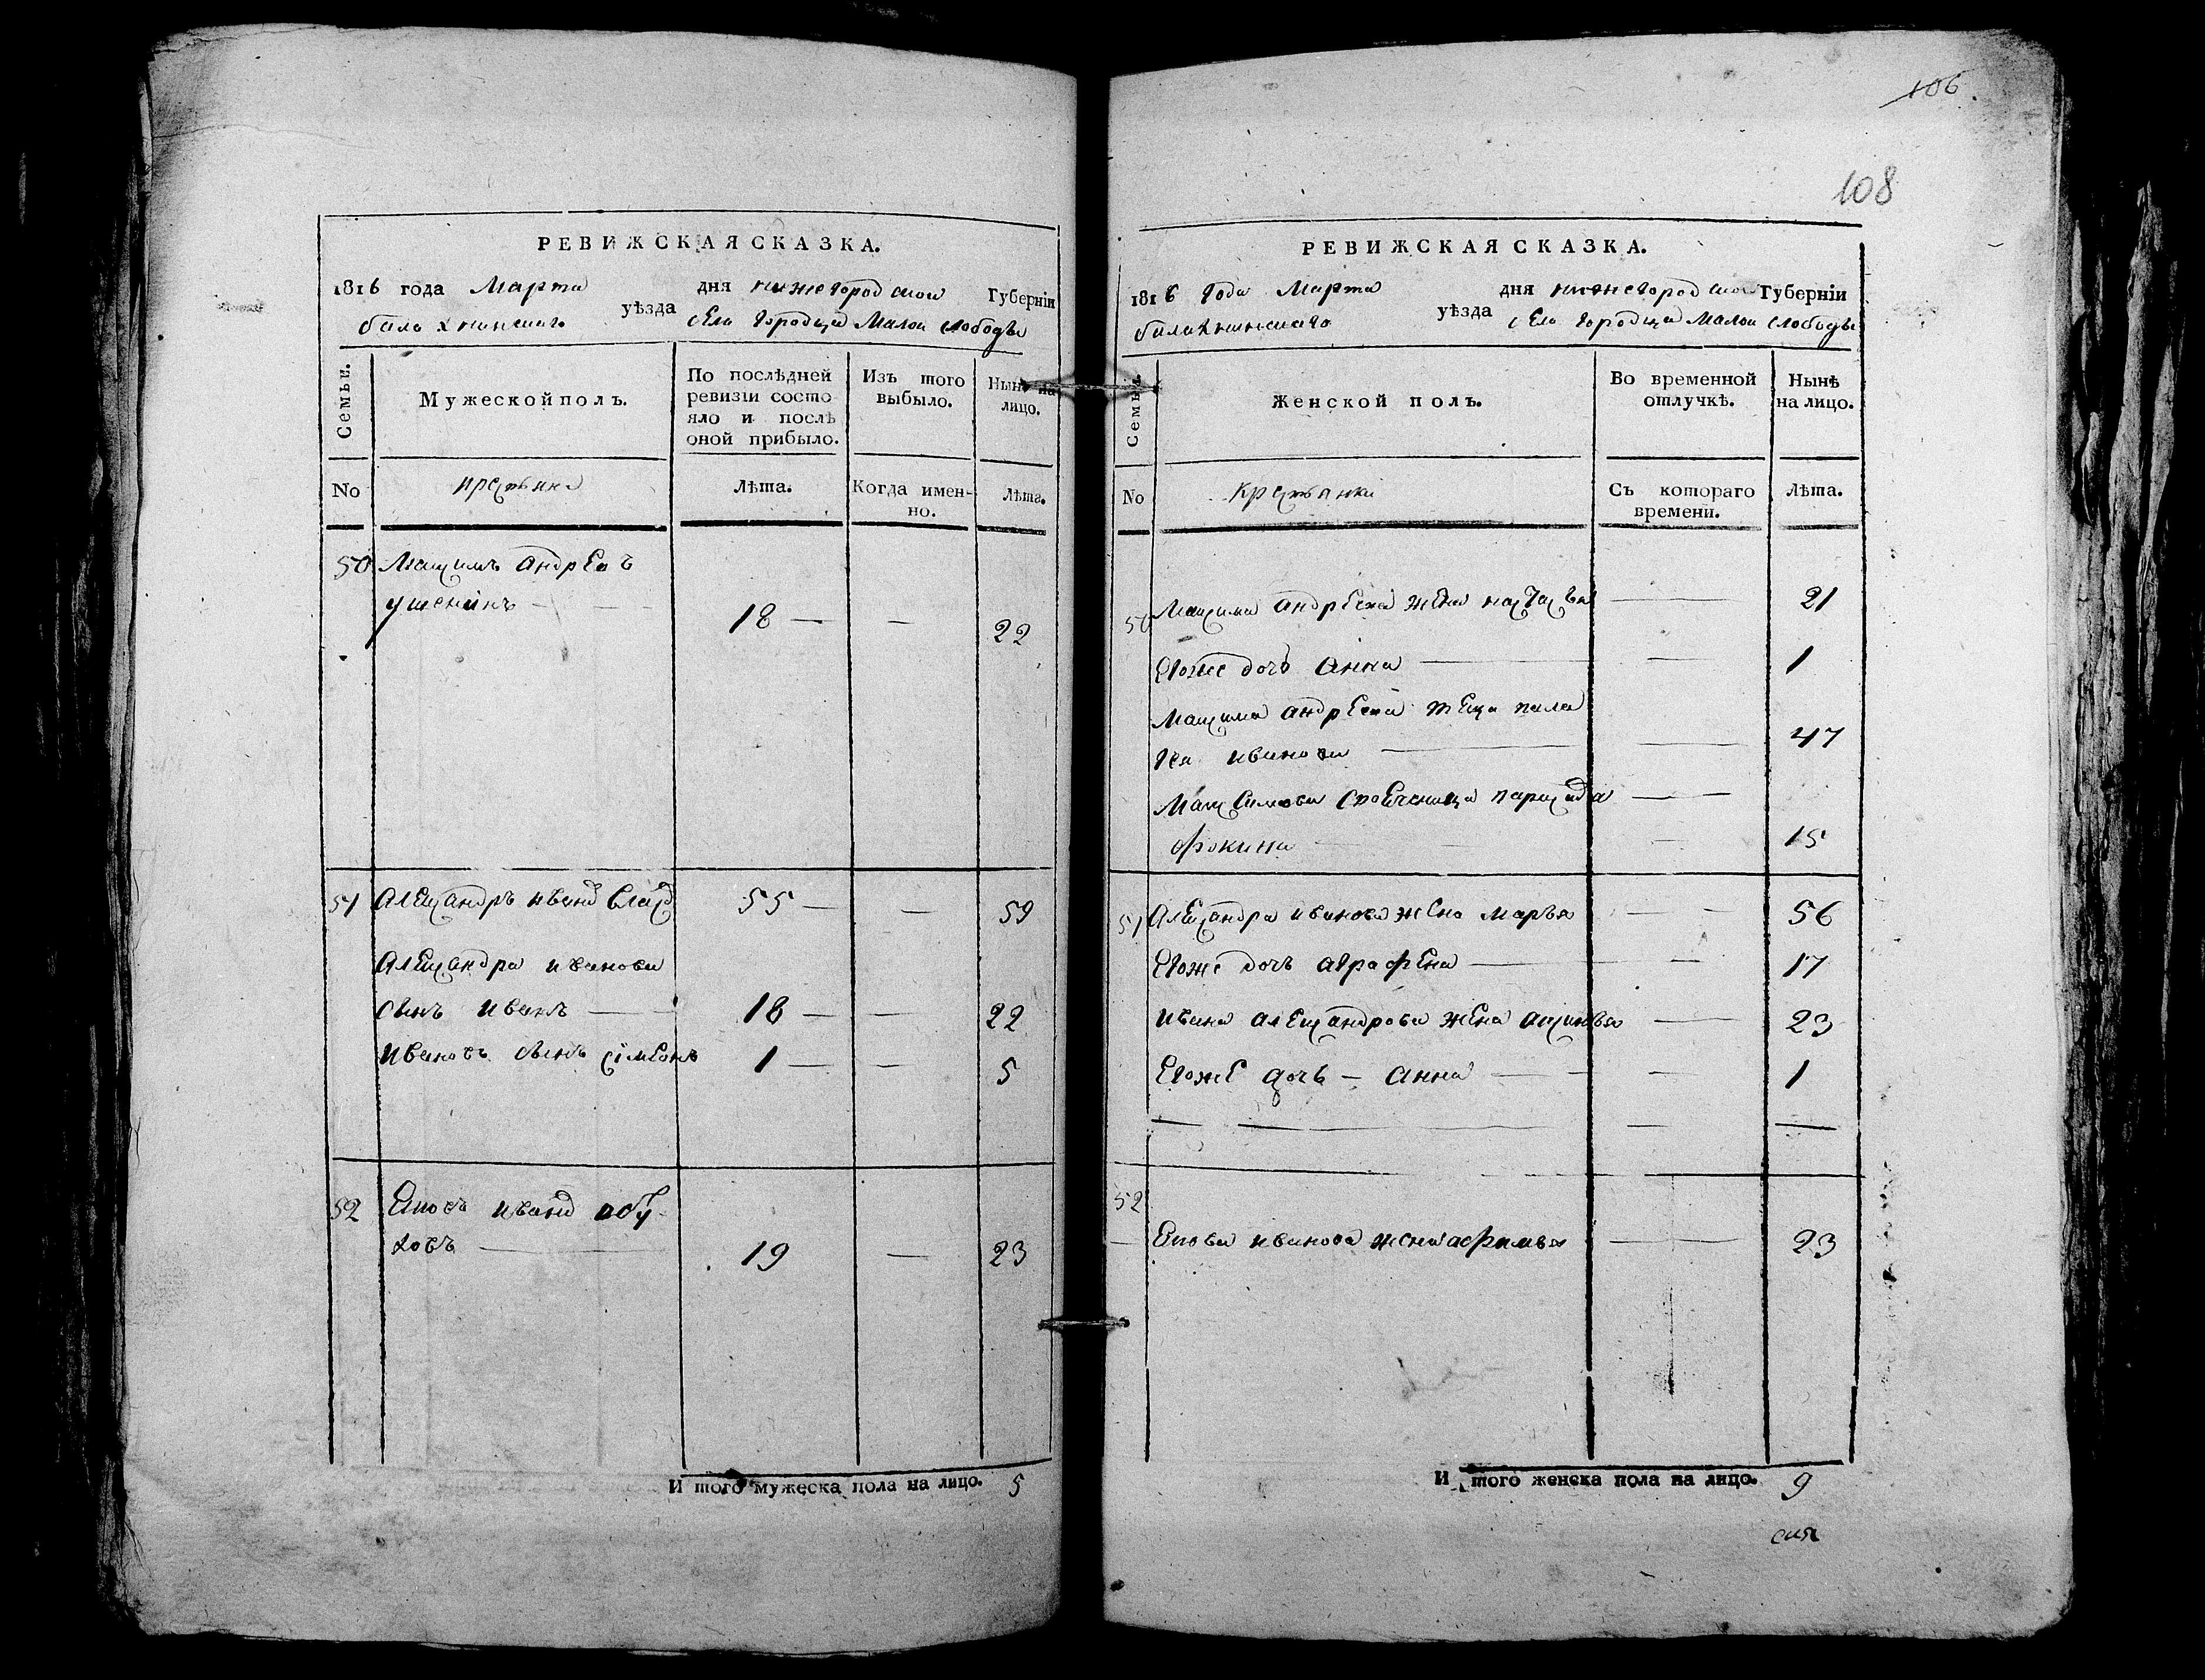 106
108
РЕВИЖСКАЯ СКАЗКА.
1816 года Марта дня нижегородской Губерніи
балахнинскаго уѣзда села городца Малой слободы
Семьи.
Мужеской полъ.
По послѣдней ревизіи состояло и послѣ оной прибыло.
Изъ того выбыло.
Нынѣ на лицо.
No
крестьяне
Лѣта.
Когда именно.
Лѣта.
50 Максимъ андреевъ
18 — — 22
51 Александръ иванов 55 — — 59
Александра иванова
сынъ иванъ — 18 — — 22
Ивановъ сынъ симеонъ 1 — — 5
52 Яковъ иванов обу-
ховъ — 19 — 23
И того мужеска пола на лицо. 5
РЕВИЖСКАЯ СКАЗКА.
1816 года Марта дня нижегородской Губерніи
балахнинскаго уѣзда села городца Малой слободы
Семьи.
Женской полъ.
Во временной отлучкѣ.
Нынѣ на лицо.
No
Крестьянки
Съ котораго времени.
Лѣта.
50 Максима андреева жена настасья — 21
Егоже дочь анна — — 1
Максима андреева теща пела
гея иванова — — 47
Максимова своеченица параскидва — —
фокина — — 15
51 Александра иванова жена марья — — 56
Егоже дочь аграфена — — 17
ивана александрова жена аксинья — 23
Егоже дочь — анна — — 1
52
Якова иванова жена афимья — — 23
И того женска пола на лицо. 9